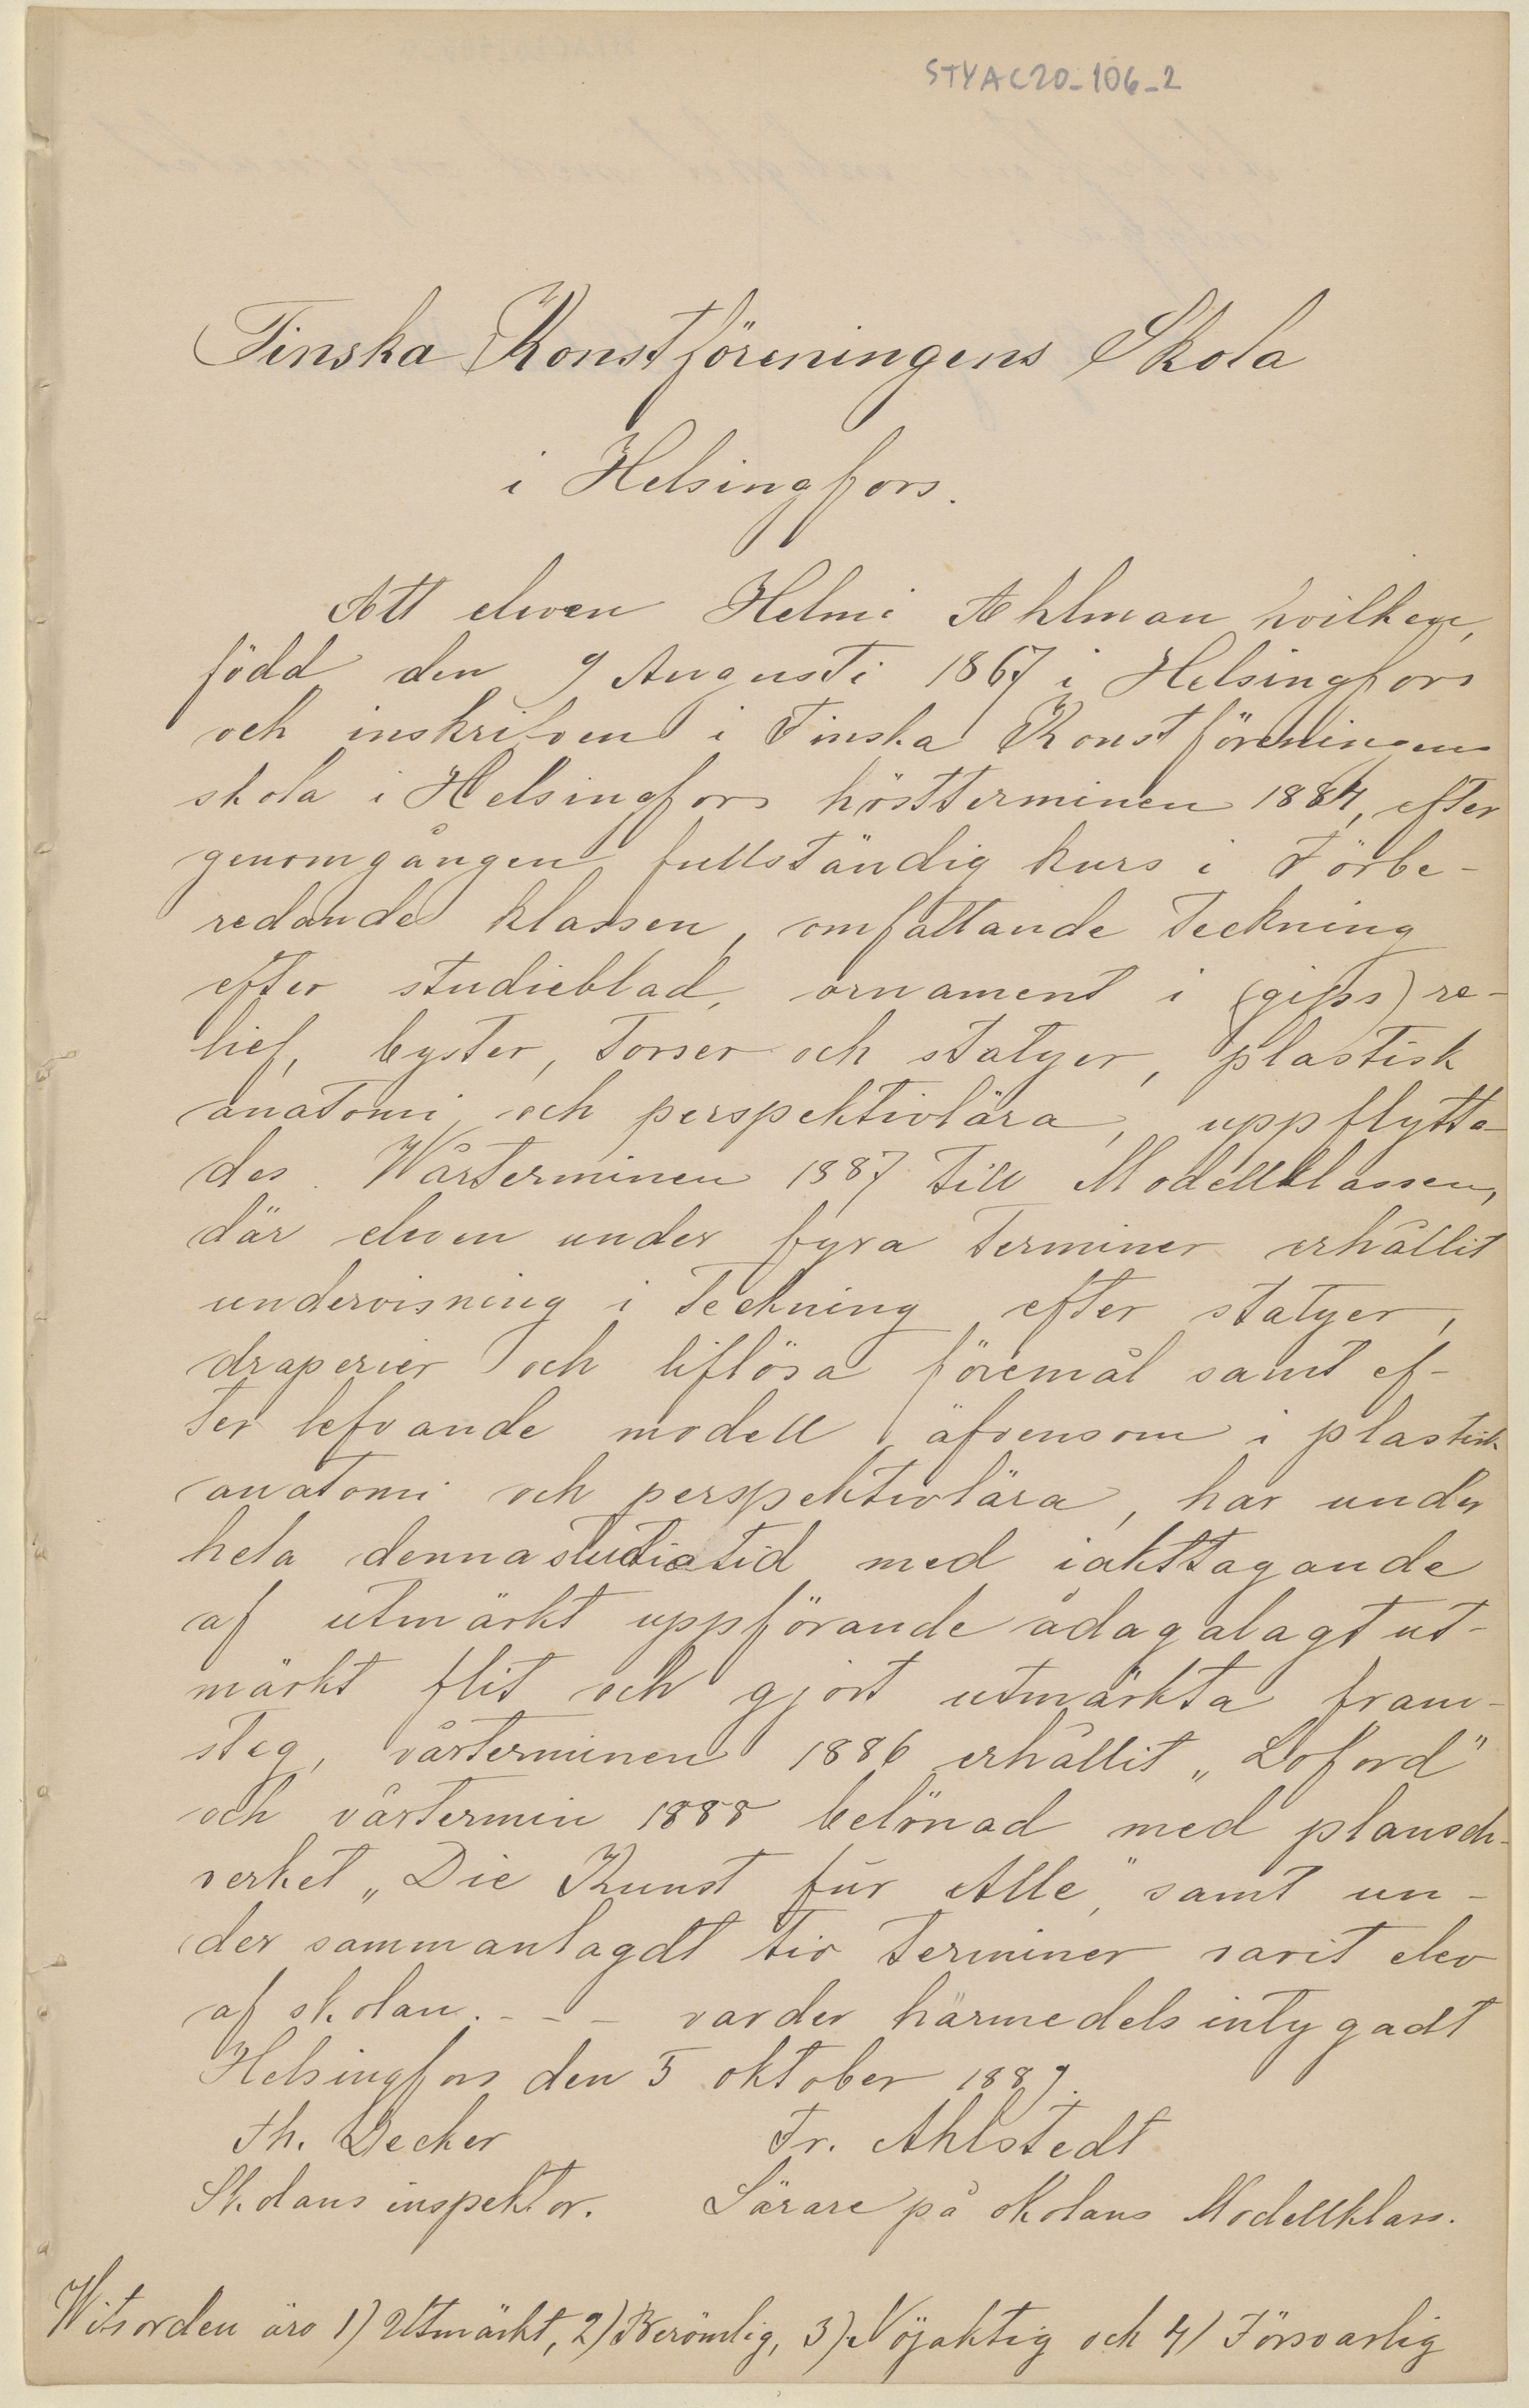 STYAC20-106-2
Finska Konstföreningens Skola
i Helsingfors.
Att eleven Helmi Ahlman hvilken,
född den 9 Augusti 1867 i Helsingfors
och inskrifven i Finska Konstföreningens
skola i Helsingfors höstterminen 1884, efter
genomgången fullständig kurs i Förbe-
redande klassen, omfattande teckning
efter studieblad, ornament i (gips) re-
lief, byster, torser och statyer, plastisk
anatomi och perspektivlära, uppflytta-
des Wårterminen 1887 till Modellklassen,
där eleven under fyra terminer erhållit
undervisning i teckning efter statyer,
draperier och liflösa föremål samt ef-
ter lefvande modell, äfvensom i plastisk
anatomi och perspektivlära, har under
hela denna studietid med iakttagande
af utmärkt uppförande ådagalagt ut-
märkt flit och gjort utmärkta fram-
steg, vårterminen 1886 erhållit „Loford"
och vårtermin 1888 belönad med plansch-
verket „Die Kunst für Alle," samt un-
der sammanlagdt tio terminer varit elev
af skolan. - - - varder härmedels intygadt
Helsingfors den 5 oktober 1889.
Th. Decker Fr. Ahlstedt
Skolans inspektor. Lärare på skolans Modellklass.
Witsorden äro 1) Utmärkt, 2) Berömlig, 3) Nöjaktig och 4) Försvarlig